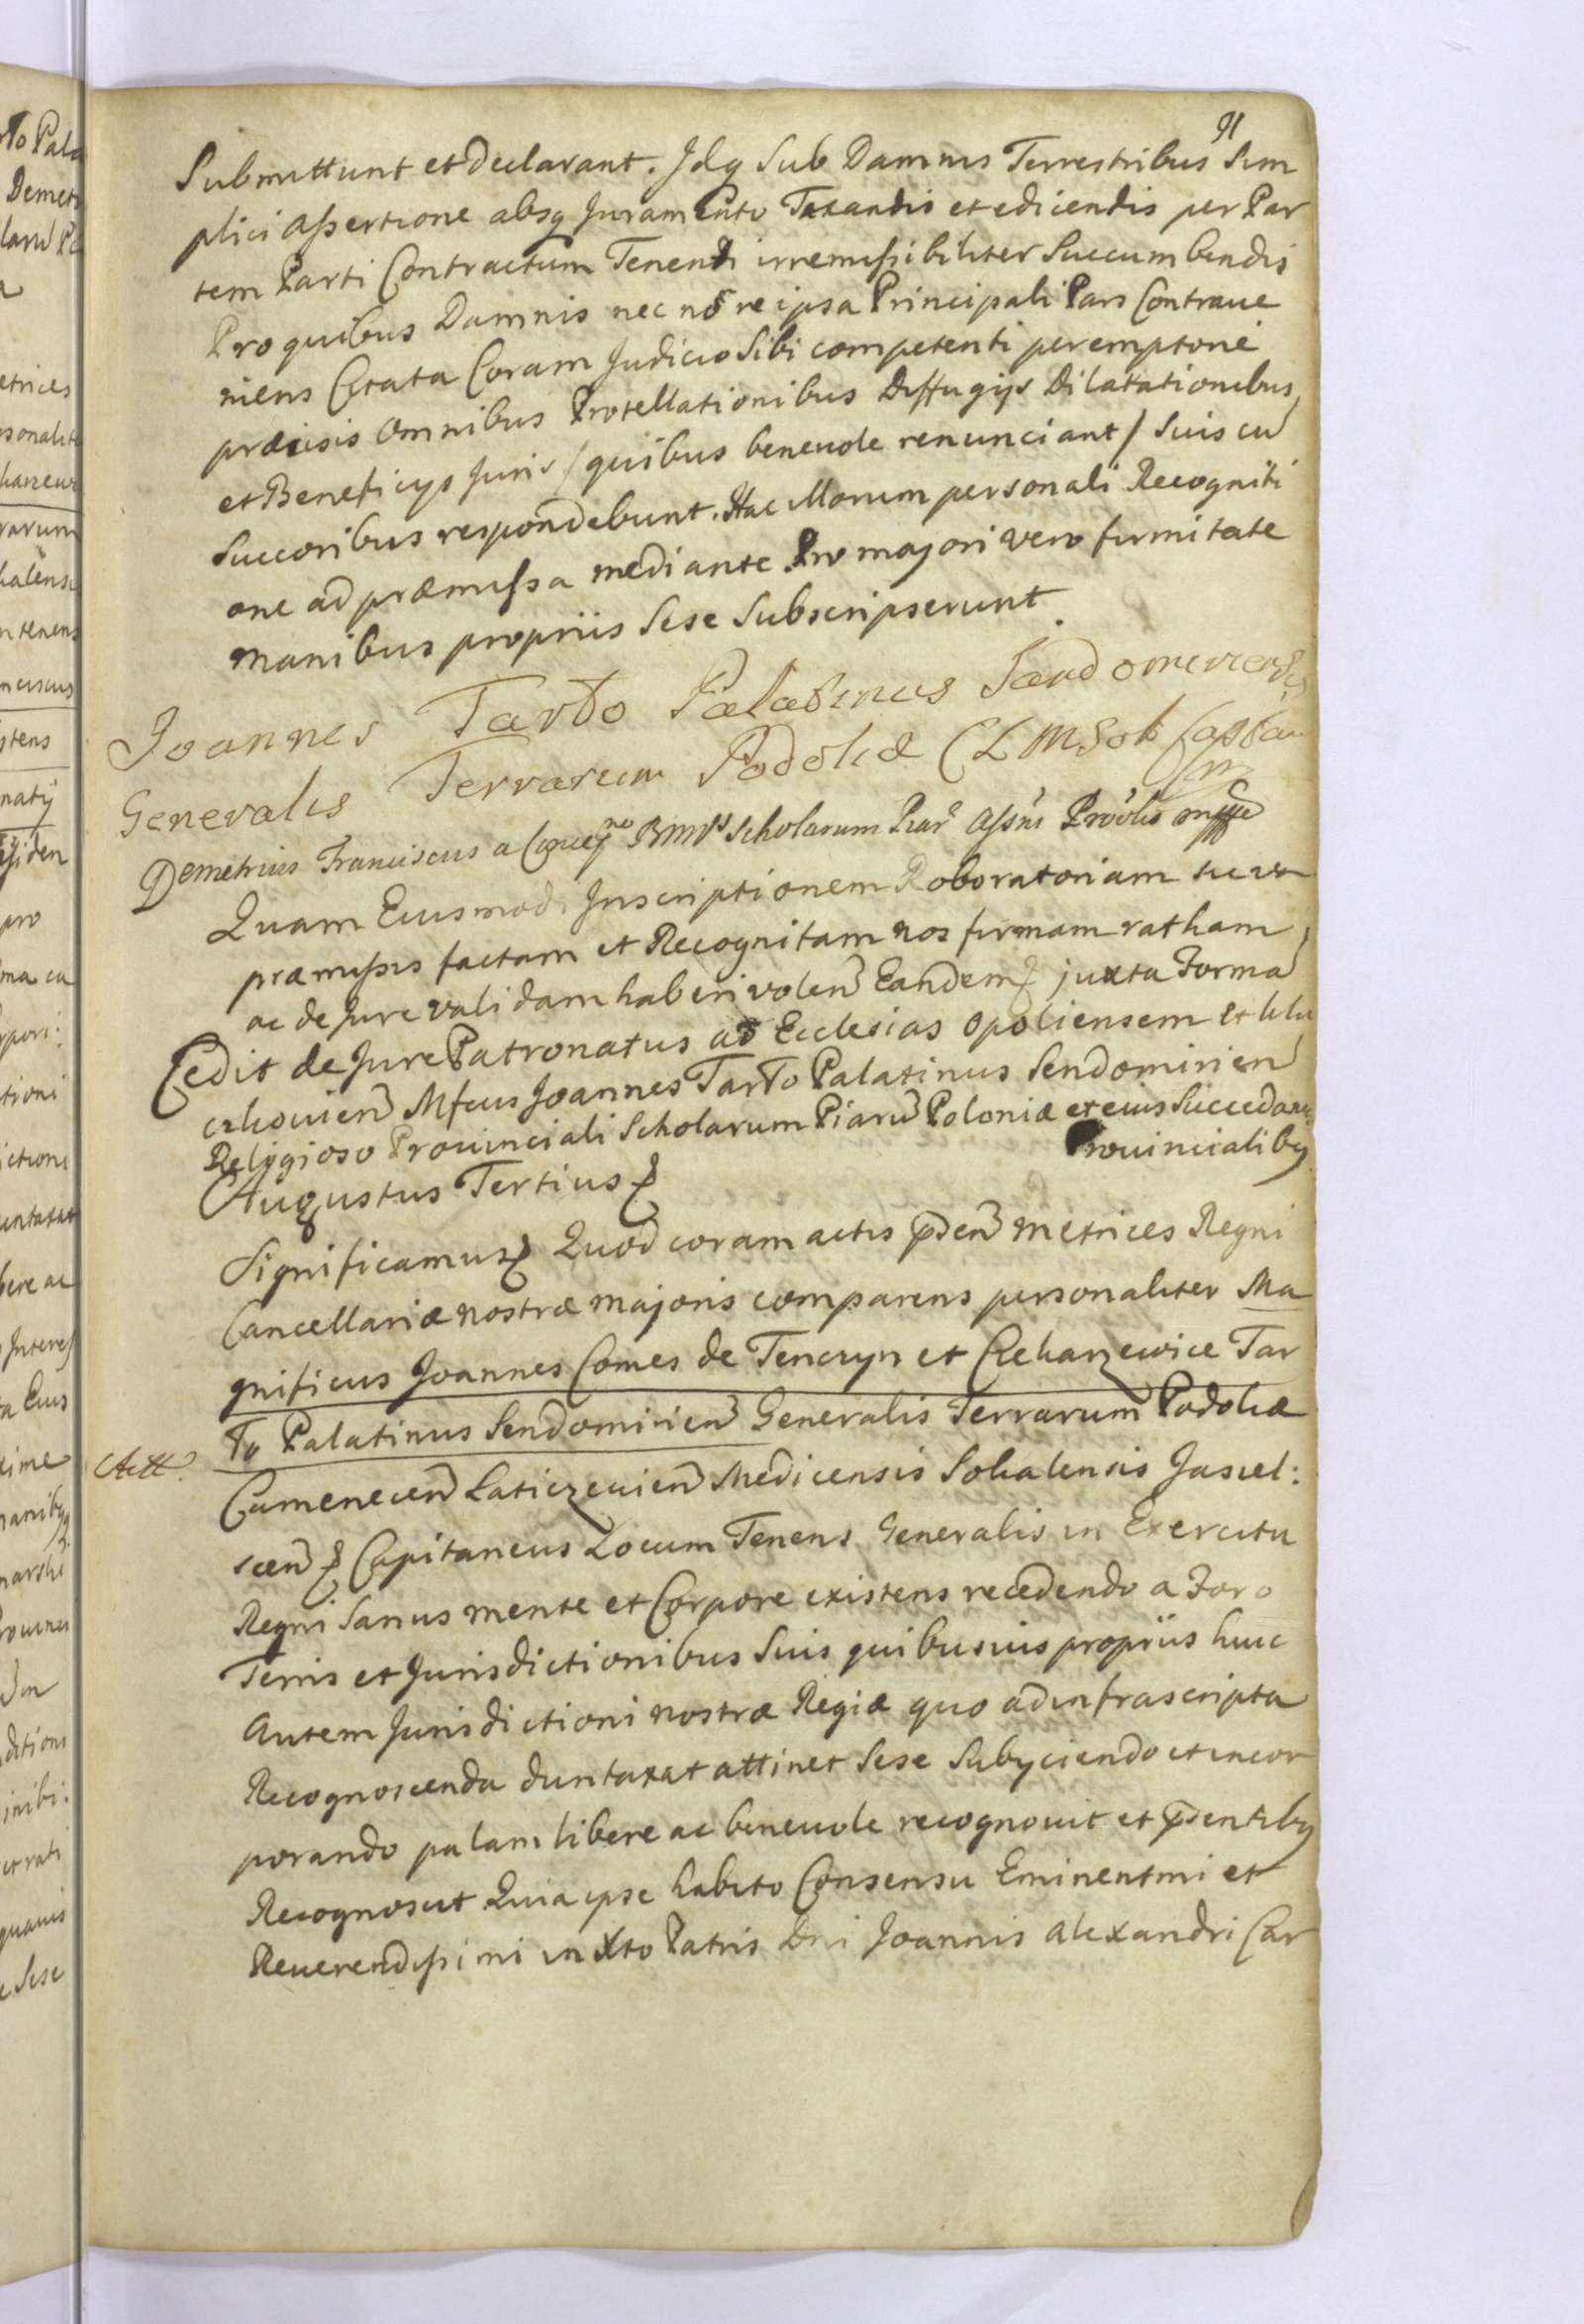 91
Submittunt et declarant. Idq Sub Damnis Terrestribus Sim
plici Assertione absq Juramento Taxandis et edicendis per Par
tem Parti Contractum Tenenti irremissibiliter Succumbendis
Pro quibus Damnis nec nō re ipsa Principali Pars Contraue
niens Citata Coram Judicio Sibi competenti peremptorie
præcisis Omnibus Protellationibus Diffugijs Dilatationibus
et Beneficijs Juris / quibus beneuole renunciant / Suis cū
Succoribus respondebunt. Hac Illorum personali Recogniti
one ad præmissa mediante Pro majori vero firmitate
manibus propriis Sese Subscripserunt.
Joannes Tarło Palatinus Sandomiriensis
Generalis Terrarum Podoliæ CLMSok Capitan
Demetrius Franciscus a Scholarum Piar Assns Provlis mpp
Quam Eiusmodi Inscriptionem Roboratoriam
præmissis factam et Recognitam nos firmam ratham
ac de Jure validam haberi volen Eandemq juxta Forma
Cedit de Jure Patronatus ad Ecclesias Opoliensem et Wlu
czkouien Mfcus Joannes Tarło Palatinus Sendomirien
Religioso Prouinciali Scholarum Piarū Poloniæ et eius Succedan
Prouincialibq
Augustus Tertius &
Significamus & Quod coram actis pden metrices Regni
Cancellariæ nostræ majoris comparens personaliter Ma
gnificus Joannes Comes de Tenczyn et Czekarzewice Tar
ło Palatinus Sendomirien Generalis Terrarum Podoliæ
Camenecen Laticzeuien Medicensis Sokalensis Jasiel:
scen & Capitaneus Locum Tenens Generalis in Exercitu
Regni Sanus mente et Corpore existens recedendo a Foro
Terris et Jurisdictionibus Suis quibusuis propriis huic
Autem Jurisdictioni nostræ Regiæ quo ad infrascripta
Recognoscenda duntaxat attinet Sese Subyciendo et incor
porando palam libere ac beneuole recognouit et psentibq
Recognoscit Quia ipse habito Consensu Eminentmi et
Reuerendissimi in Xto Patris Dni Joannis Alexandri Car